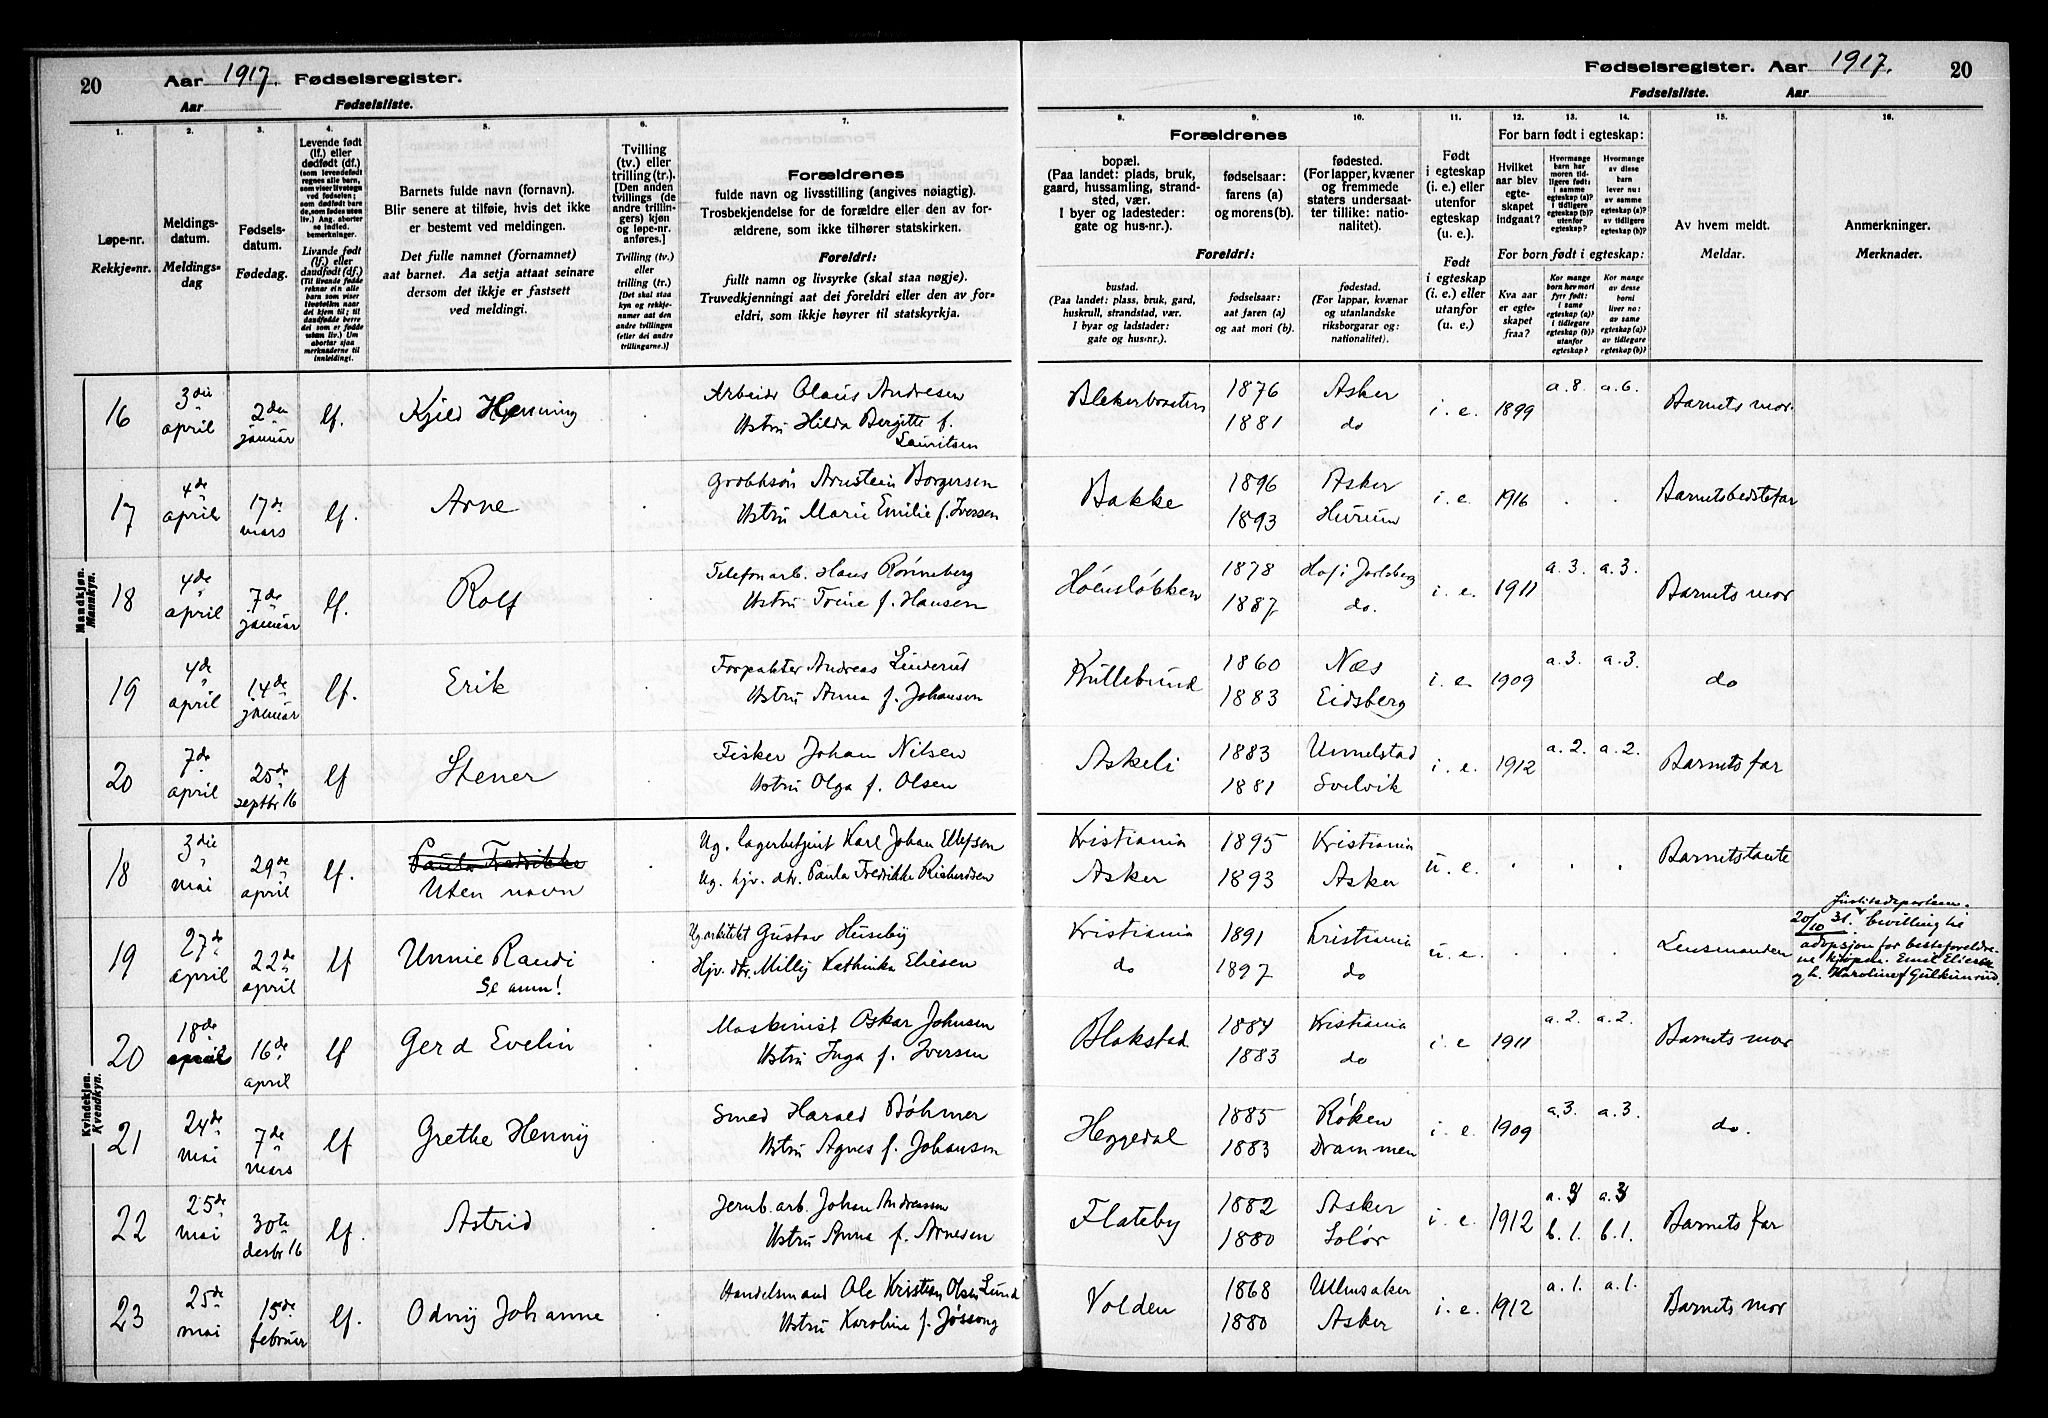 20 Aar 1917. Fødselsregister.
Aar Fødselsliste.
Fødselsregister. Aar 1917. 20
Fødselsliste. Aar
1. 2. 3. 4. 5. 6. 7. 8. 9. 10. 11. 12. 13. 14. 15. 16.
Løpe-nr.
Rekkje-nr.
Meldings-
datum.
Meldings-
dag
Fødsels-
datum.
Fødedag.
Levende født
(lf.) eller
dødfødt (df.)
Livande født
(lf.) eller
daudfødt (df.)
Barnets fulde navn (fornavn).
Blir senere at tilføie, hvis det ikke
er bestemt ved meldingen.
Det fulle namnet (fornamnet)
aat barnet. Aa setja attaat seinare
dersom det ikkje er fastsett
ved meldingi.
Tvilling
(tv.) eller
trilling (tr.).
[Den anden
tvillings (de
andre trillin-
gers) kjøn
og løpe-nr.
anføres.]
Tvilling (tv.)
eller
trilling (tr.)
[Det skal staa
kyn og rekkje-
numer aat den
andre tvillingen
(eller dei andre
trillingarne.)]
Forældrenes
fulde navn og livsstilling (angives nøiagtig).
Trosbekjendelse for de forældre eller den av for-
ældrene, som ikke tilhører statskirken.
Foreldri:
fullt namn og livsyrke (skal staa nøgje).
Truvedkjenningi aat dei foreldri eller den av for-
eldri, som ikkje høyrer til statskyrkja.
Forældrenes
bopæl.
(Paa landet: plads, bruk,
gaard, hussamling, strand-
sted, vær.
I byer og ladesteder:
gate og hus-nr.).
fødselsaar:
farens (a)
og morens (b).
fødested.
(For lapper, kvæner
og fremmede
staters undersaat-
ter tillike: natio-
nalitet).
Foreldri:
bustad.
(Paa landet: plass, bruk, gard,
huskrull, strandstad, vær.
I byar og ladstader:
gate og hus-nr.).
fødselsaar:
aat faren (a)
og aat mori (b).
fødestad.
(For lappar, kvænar
og utanlandske
riksborgarar og:
nationalitet).
Født
i egteskap
(i. e.) eller
utenfor
egteskap
(u. e.).
Født
i egteskap
(i. e.) eller
utanfor
egteskap
(u. e.).
For barn født i egteskap:
Hvilket
aar blev
egte-
skapet
indgaat?
For born født i egteskap:
Kva aar
er egte-
skapet
fraa?
Av hvem meldt.
Meldar.
Anmerkninger.
Merknader.
Mandkjøn.
Mannkyn.
16 3die april 2den januar lf. Kjell Henning Arbeider Olaus Andresen Blekerbraaten 1876 Asker i. e. 1899 a. 8. a. 6. Barnets mor.
Hustru Hilda Bergitte f. 1881 do
Lauritsen
17 4de april 17de mars lf. Arne Arnstein Borgersen Bakke 1896 Asker i. e. 1916 . . Barnets bedstefar
Hustru Marie Emilie f. Iversen 1893 Hurum
18 4de april 7de januar lf. Rolf Telefonarb. Hans Rønneberg Høensløkken 1878 Hof i Jarlsberg i. e. 1911 a. 3. a. 3. Barnets mor
Hustru Trine f. Hansen 1887 do.
19 4de april 14de januar lf. Erik Forpakter Andreas Linderut Kullebund 1860 Næs i. e. 1909 a. 3. a. 3. do
Hustru Anna f. Johansen 1883 Eidsberg
20 7de april 25de septbr 16 lf Stener Fisker Johan Nilsen Askeli 1883 Unnelstad i. e. 1912 a. 2. a. 2. Barnets far
Hustru Olga f. Olsen 1881 Svelvik
Kvindekjøn.
Kvendkyn.
18 3die mai 29de april lf. Paula Fredrikke Ug. lagerbetjent Karl Johan Ellefsen Kristiania 1895 Kristiania u. e. . . . Barnets tante
Uten navn Ug. hjv. dtr. Paula Fredrikke Richardsen Asker 1893 Asker
19 27de april 22de april lf Unnie Randi Ug. arkitekt Gustav Huseby Kristiania 1891 Kristiania u. e. . . . Lensmanden
Se anm! Hjv. dtr. Milly Kathinka Eliesen do 1897 do
Justitsdepartem.
20/10 31. bevilling til
adopsjon for besteforeldre-
ne kjøpm. Emil Eliesen
og h. Karoline f Gulhunrud.
20 18de april 16de april lf Gerd Evelin Maskinist Oskar Johnsen Blakstad 1884 Kristiania i. e 1911 a. 2. a. 2. Barnets mor
Hustru Inga f. Iversen 1883 do
21 24de mai 7de mars lf Grethe Henny Smed Harald Bøhmer Heggedal 1885 Røken i. e. 1909 a. 3. a. 3. do.
Hustru Agnes f. Johansen 1883 Drammen
22 25de mai 30te desbr 16 lf. Astrid Jernb. arb. Johan Andreassen Flateby 1882 Asker i. e. 1912 a. 3 a. 3 Barnets far
Hustru Anna f. Arnesen 1880 Solør b. 1. b. 1.
23 25de mai 15de februar lf. Odny Johanne Handelsmand Ole Kristian Olsen Lund Volden 1868 Ullensaker i. e. 1912 a. 1. a. 1. Barnets mor
Hustru Karoline f. Jøssong 1880 Asker